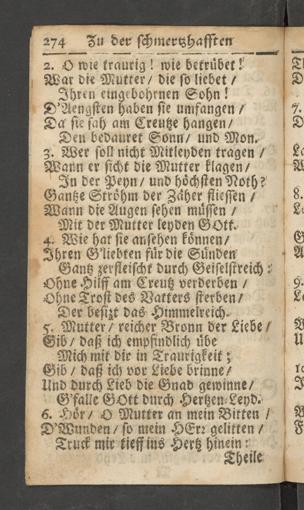 274 Zu der schmertzhafften
2. O wie traurig! wie betrübet!
War die Mutter / die so liebet /
Ihren eingebohrnen Sohn!
D'Aengsten haben sie umfangen /
Da sie sah am Creutze hangen /
Den bedauret Sonn / und Mon.
3. Wer soll nicht Mitleyden tragen /
Wann er sicht die Mutter klagen /
In der Peyn / und höchsten Noth?
Gantze Ströhm der Zäher fliessen /
Wann die Augen sehen müssen /
Mit der Mutter leyden GOtt.
4. Wie hat sie ansehen können /
Ihren G'liebten für die Sünden
Gantz zerfleischt durch Geiselstreich:
Ohne Hilff am Creutz verderben /
Ohne Trost des Vatters sterben /
Der besitzt das Himmelreich.
5. Mutter / reicher Bronn der Liebe /
Gib / daß ich empfindlich übe
Mich mit dir in Traurigkeit;
Gib / daß ich vor Liebe brinne /
Und durch Lieb die Gnad gewinne /
G'falle GOtt durch Hertzen-Leyd.
6. Hör / O Mutter an mein Bitten /
D'Wunden / so mein HErr gelitten /
Truck mir tieff ins Hertz hinein:
Theile